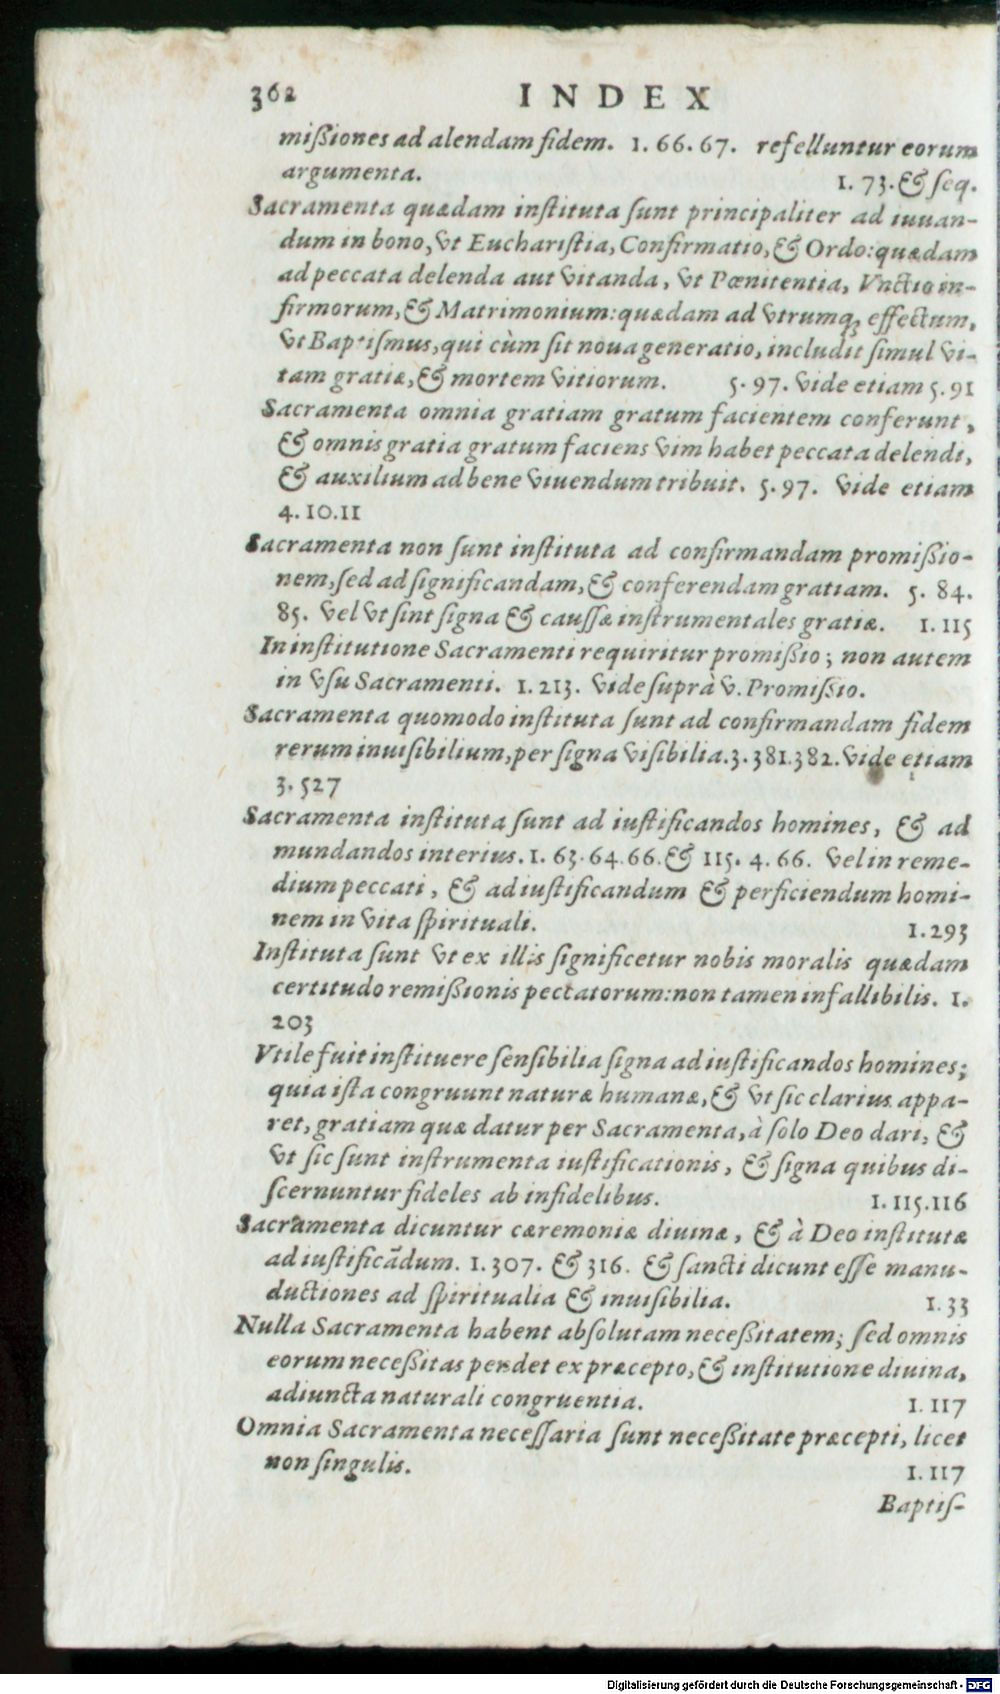 362 INDEX
mißiones ad alendam fidem. 1. 66. 67. refelluntur eorum
argumenta. 1. 73. & seq.
Sacramenta quædam instituta sunt principaliter ad iuuan-
dum in bono, vt Eucharistia, Confirmatio, & Ordo: quædam
ad peccata delenda aut vitanda, vt Pœnitentia, Vnctio in-
firmorum, & Matrimonium: quædam ad vtrumq; effectum,
vt Baptismus, qui cùm sit noua generatio, includit simul vi-
tam gratiæ, & mortem vitiorum. 5. 97. vide etiam 5. 91
Sacramenta omnia gratiam gratum facientem conferunt,
& omnis gratia gratum faciens vim habet peccata delendi,
& auxilium ad bene viuendum tribuit. 5. 97. vide etiam
4. 10. 11
Sacramenta non sunt instituta ad confirmandam promißio-
nem, sed ad significandam, & conferendam gratiam. 5. 84.
85. vel vt sint signa & caussæ instrumentales gratiæ. 1. 115
In institutione Sacramenti requiritur promißio; non autem
in vsu Sacramenti. 1. 213. vide suprà v. Promißio.
Sacramenta quomodo instituta sunt ad confirmandam fidem
rerum inuisibilium, per signa visibilia. 3. 381. 382. vide etiam
3. 527
Sacramenta instituta sunt ad iustificandos homines, & ad
mundandos interius. 1. 63. 64. 66. & 115. 4. 66. vel in reme-
dium peccati, & ad iustificandum & perficiendum homi-
nem in vita spirituali. 1. 293
Instituta sunt vt ex illis significetur nobis moralis quædam
certitudo remißionis peccatorum: non tamen infallibilis. 1.
203
Vtile fuit instituere sensibilia signa ad iustificandos homines;
quia ista congruunt naturæ humanæ, & vt sic clarius appa-
ret, gratiam quæ datur per Sacramenta, à solo Deo dari, &
vt sic sunt instrumenta iustificationis, & signa quibus di-
scernuntur fideles ab infidelibus. 1. 115. 116
Sacramenta dicuntur cæremoniæ diuinæ, & à Deo institutæ
ad iustificãdum. 1. 307. & 316. & sancti dicunt esse manu-
ductiones ad spiritualia & inuisibilia. 1. 33
Nulla Sacramenta habent absolutam neceßitatem; sed omnis
eorum neceßitas pendet ex præcepto, & institutione diuina,
adiuncta naturali congruentia. 1. 117
Omnia Sacramenta necessaria sunt neceßitate præcepti, licet
non singulis. 1. 117
Baptis-
Digitalisierung gefördert durch die Deutsche Forschungsgemeinschaft - DFG